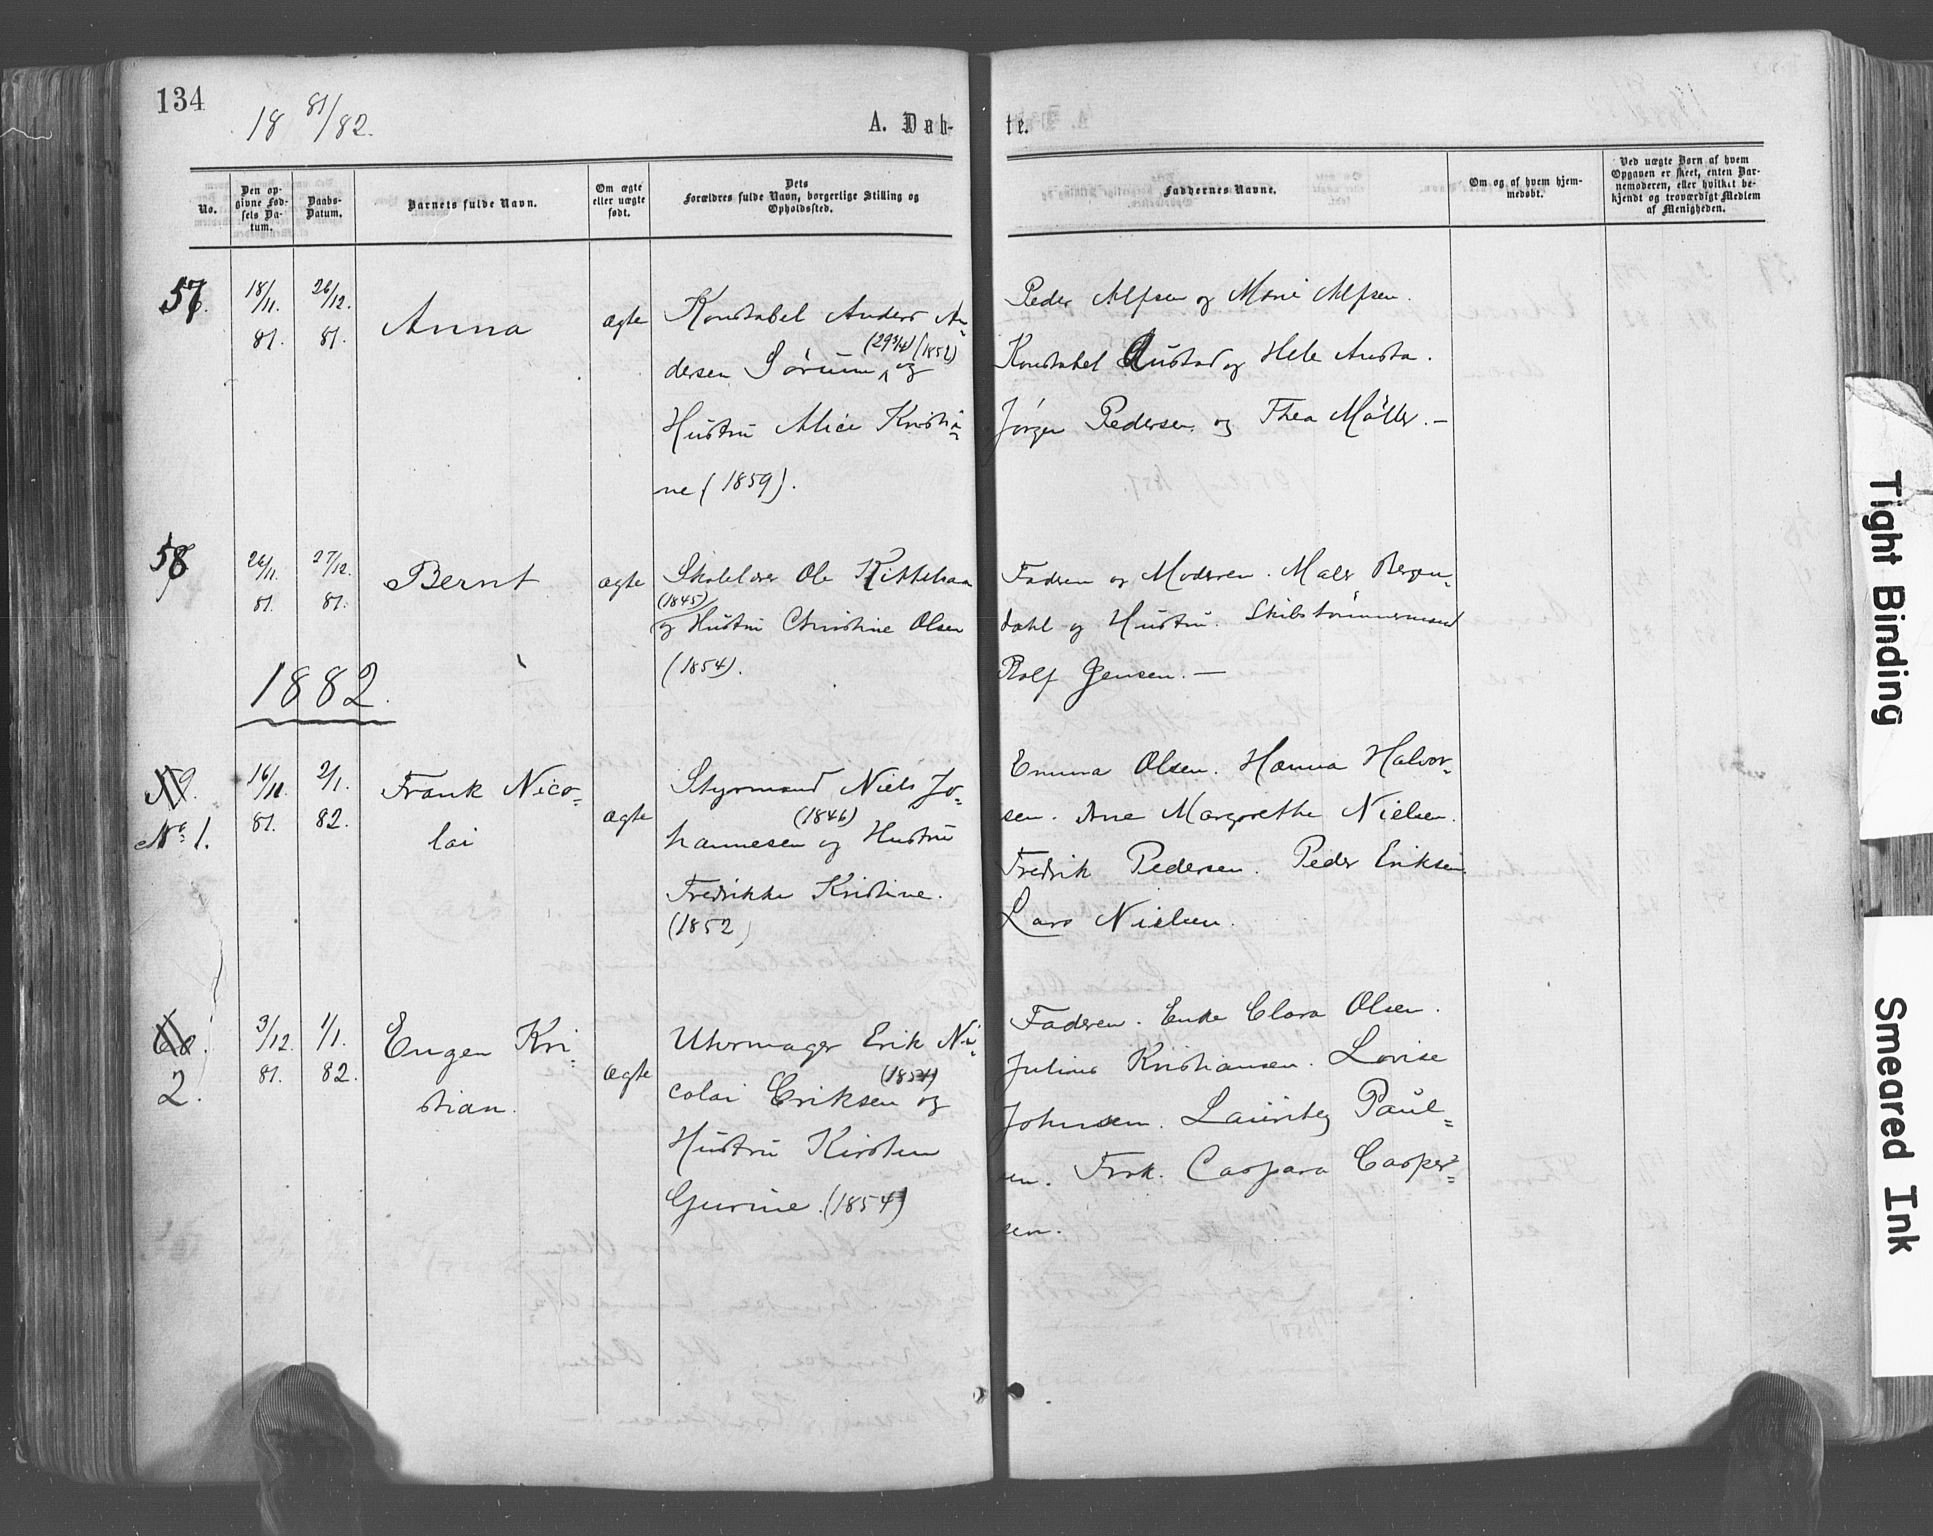 134
18 81/82.
A. Døb-
te.
No.
Den op-
givne Fød-
sels Da-
tum.
Daabs-
Datum.
Barnets fulde Navn.
Om ægte
eller uægte
født.
Dets
Forældres fulde Navn, borgerlige Stilling og
Opholdssted.
Faddernes Navne.
Om og af hvem hjem-
medøbt.
Ved uægte Børn af hvem
Opgaven er skeet, enten Bar-
nemoderen, eller hvilket be-
kjendt og troværdigt Medlem
af Menigheden.
57.
18/11.
81.
26/12.
81.
Anna
ægte
Konstabel Anders An-
dersen Sørum (1852) og
Hustru Alice Kristia-
ne (1859).
Peder Alfsen og Marie Alfsen.
Konstabel Austad og Hele Austa.
Jørgen Pedersen og Thea Möller. –
58
26/11.
81.
27/12.
81.
Bernt
ægte
Skolelærer Ole Kittelsen
(1845)
og Hustru Christine Olsen
(1854).
Faderen og Moderen. Maler Bergen-
dahl og Hustru. Skibstømmermand
Rolf Jensen. –
1882.
59.
No 1.
16/11.
81.
2/1.
82.
Frank Nico-
lai
ægte
Styrmand Niels Jo-
hannesen (1846) og Hustru
Fredrikke Kristine.
(1852)
Emma Olsen. Hanna Halvor-
sen. Ane Margrethe Nielsen.
Fredrik Pedersen. Peder Eriksen
Lars Nielsen.
60.
2.
3/12.
81.
1/1.
82.
Eugen Kri-
stian.
ægte
Uhrmager Erik Ni-
colai Eriksen (1854) og
Hustru Kirsten
Gurine. (1854)
Faderen. Enke Clara Olsen.
Julius Kristiansen. Lovise
Johnsen. Lauritz Paul-
sen. Frk. Caspara Casper-
sen.
Tight Binding
Smeared Ink